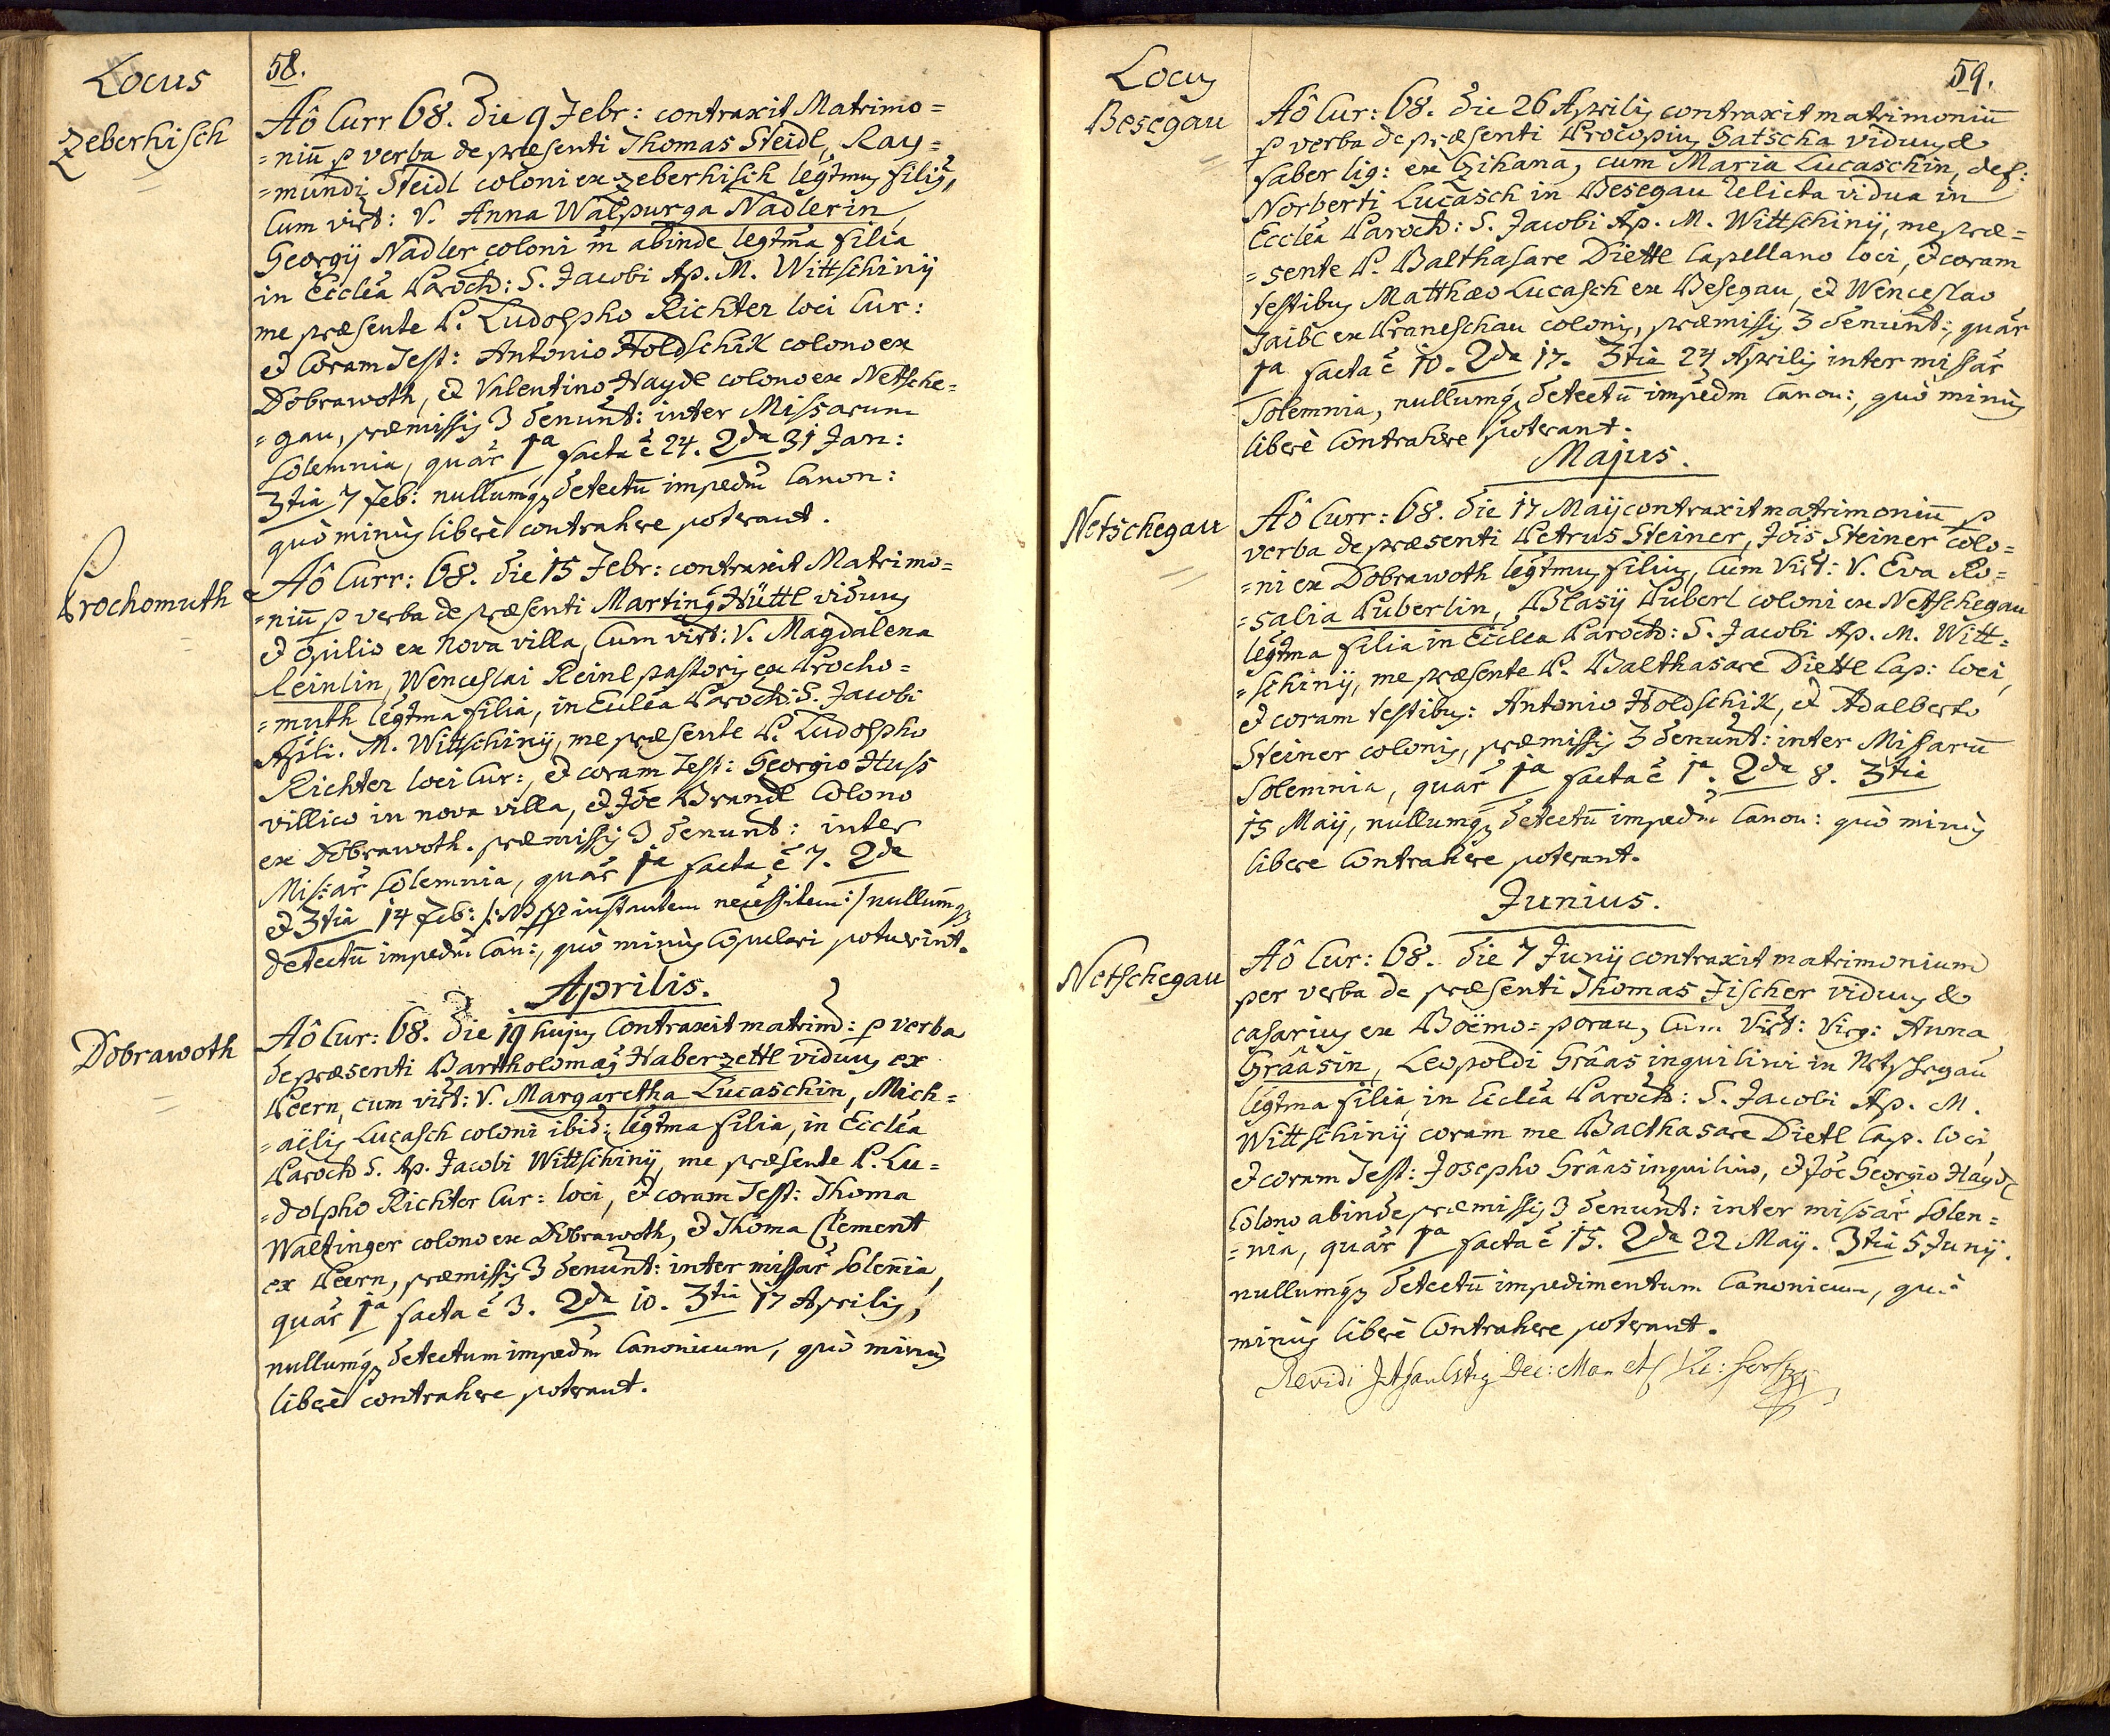 Locus
58.
Zeberhisch
Aô Curr 68. die 9 Febr: contraxit Matrimo=
=niū p verba de præsenti Thomas Steidl, Ray=
=mundi Steidl coloni ex Zeberhisch legtmus filiȝ,
Cum virt: V. Anna Walpurga Nadlerin,
Georgÿ Nadler coloni abinde legtma filia
in Ecclēa Paroch: S. Jacobi Ap. M. Wittschinÿ
me præsente P. Ludolpho Richter loci Cur:
et Coram Test: Antonio Holdschik colono ex
Dobrawoth, et Valentino Haydl colono ex Netsche=
=gau, præmissis 3 denunt: inter Missarum
Solemnia, quar 1ma facta ē 24. 2da 31 Jan:
3tia 7 Feb: nullumq detectū impedm Canon:
quò minus liberè contrahere poterant.
Prochomuth
Aô Curr: 68. die 15 Febr: contraxit Matrimo=
=niū p verba de præsenti Martinȝ Hüttl viduus
et opilio ex nova villa, Cum virt: V. Magdalena
Reinlin, Wenceslai Reinl pastoris ex Procho=
=muth legtma filia, in Ecclēa Paroch: S. Jacobi
Apli. M. Wittschinÿ, me præsente P. Ludolpho
Richter loci Cur:, et coram Test: Georgio Huss
villico in nova villa, et Jōe Brandl Colono
ex Dobrawoth. præmissis 3 denunt: inter
Miss:ar Solemnia, quar 1a facta ē 7. 2da
et 3tia 14 Feb: /: NB pp instantem necessitem :/ nullumq
detectū impedm Can:, quò minus Copulari potuerint.
Aprilis.
Dobrawoth
Aô Cur: 68. die 19 hujus Contraxit matrim: p verba
de præsenti Bartholomæȝ Haberzettl viduus ex
Peern, cum virt: V. Margaretha Lucaschin, Mich=
=aëlis Lucasch coloni ibid: legtma filia, in Ecclēa
Paroch S. Ap. Jacobi Wittschinÿ, me præsente P. Lu=
=dolpho Richter Cur: loci, et coram Test: Thoma
Waltinger colono ex Dobrawoth, et Thoma Clement
ex Peern, præmissis 3 denunt: inter missar Solenia,
quar 1a facta ē 3. 2da 10. 3tia 17 Aprilis,
nullumq detectum impedm Canonicum, quò minus
liberè contrahere poterant.
Locus
59.
Besegau
Aô Cur: 68. die 26 Aprilis contraxit matrimoniū
p verba de præsenti Procopius Gatscha viduus &
faber lig: ex Czihana, cum Maria Lucaschin, def:
Norberti Lucasch in Besegau relicta vidua in
Ecclēa Paroch: S. Jacobi Ap. M. Wittschinÿ, me præ=
=sente P. Balthasare Diettl Capellano loci, et coram
testibus Matthæo Lucasch ex Besegau, et Wenceslao
Zaibl ex Praneschau colonis, præmissis 3 denunt:, quar
1a facta ē 10. 2da 17. 3tia 24 Aprilis inter missar
Solemnia, nullumq detectū impedm Canon:, quò minus
liberè Contrahere poterant.
Majus.
Netschegau
Aô Curr: 68. die 17 Maÿ contraxit matrimoniū p
verba de præsenti Petrus Steiner, Jōis Steiner colo=
=ni ex Dobrawoth legtmus filius, Cum Virt: V. Eva Ro=
=salia Puberlin, Blasÿ Puberl coloni ex Netschegau
legtma filia in Ecclēa Paroch: S. Jacobi Ap. M. Witt=
=schinÿ, me præsente P. Balthasare Diettl Cap: loci,
et coram testibus: Antonio Holdschik, et Adalberto
Steiner colonis, præmissis 3 denunt: inter Missarū
Solemnia, quar 1a facta ē 1a. 2da 8. 3tia
15 Maÿ, nullumq detectū impedm Canon: quò minus
libere Contrahere poterant.
Junius.
Netschegau
Aô Cur: 68. die 7 Junÿ contraxit matrimonium
per verba de præsenti Thomas Fischer viduus &
casarius ex Boëmo=porau, Cum Virt: Virg: Anna
Grâasin, Leopoldi Grâas inquilini in Netschegau
legtma filia in Ecclēa Paroch: S. Jacobi Ap. M.
Wittschinÿ coram me Balthasare Dietl Cap. loci
et coram Test: Josepho Grâas inquilino, et Jōe Georgio Haydl
Colono abinde præmissis 3 denunt: inter missar Solen=
=nia, quar 1a facta ē 15. 2da 22 Maÿ. 3tia 5 Junÿ.
nullumq detectū impedimentum Canonicum, quò
minus liberè Contrahere poterant.
Revidi